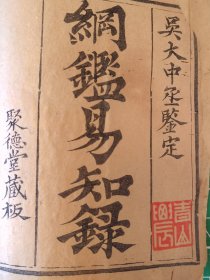 吳大中丞鑒定
綱鑑易知錄
聚德堂藏板